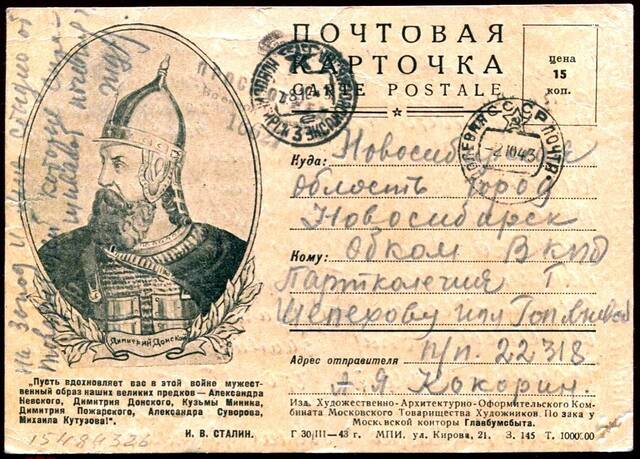 ПОЧТОВАЯ
КАРТОЧКА
CARTE POSTALE
цена
15
коп.
СССР
ПОЛЕВАЯ ПОЧТА
-2 10 43
Куда: Новосибирская
область город
Новосибирск
Кому: Обком ВКПб
Партколегия Т.
Шепехову или
Адрес отправителя П/П. 22318
А. Я Кокорин.
Димитрий Донской
"Пусть вдохновляет вас в этой войне мужест-
венный образ наших великих предков — Александра
Невского, Димитрия Донского, Кузьмы Минина,
Димитрия Пожарского, Александра Суворова,
Михаила Кутузова!".
И. В. СТАЛИН.
15489326
Изд. Художественно-Архитектурно-Оформительского Ком-
бината Московского Товарищества Художников. По заказу
Московской конторы Главбумсбыта.
Г 30/III—43 г. МПИ, ул. Кирова, 21. З. 145 Т. 1000.00
на запад и